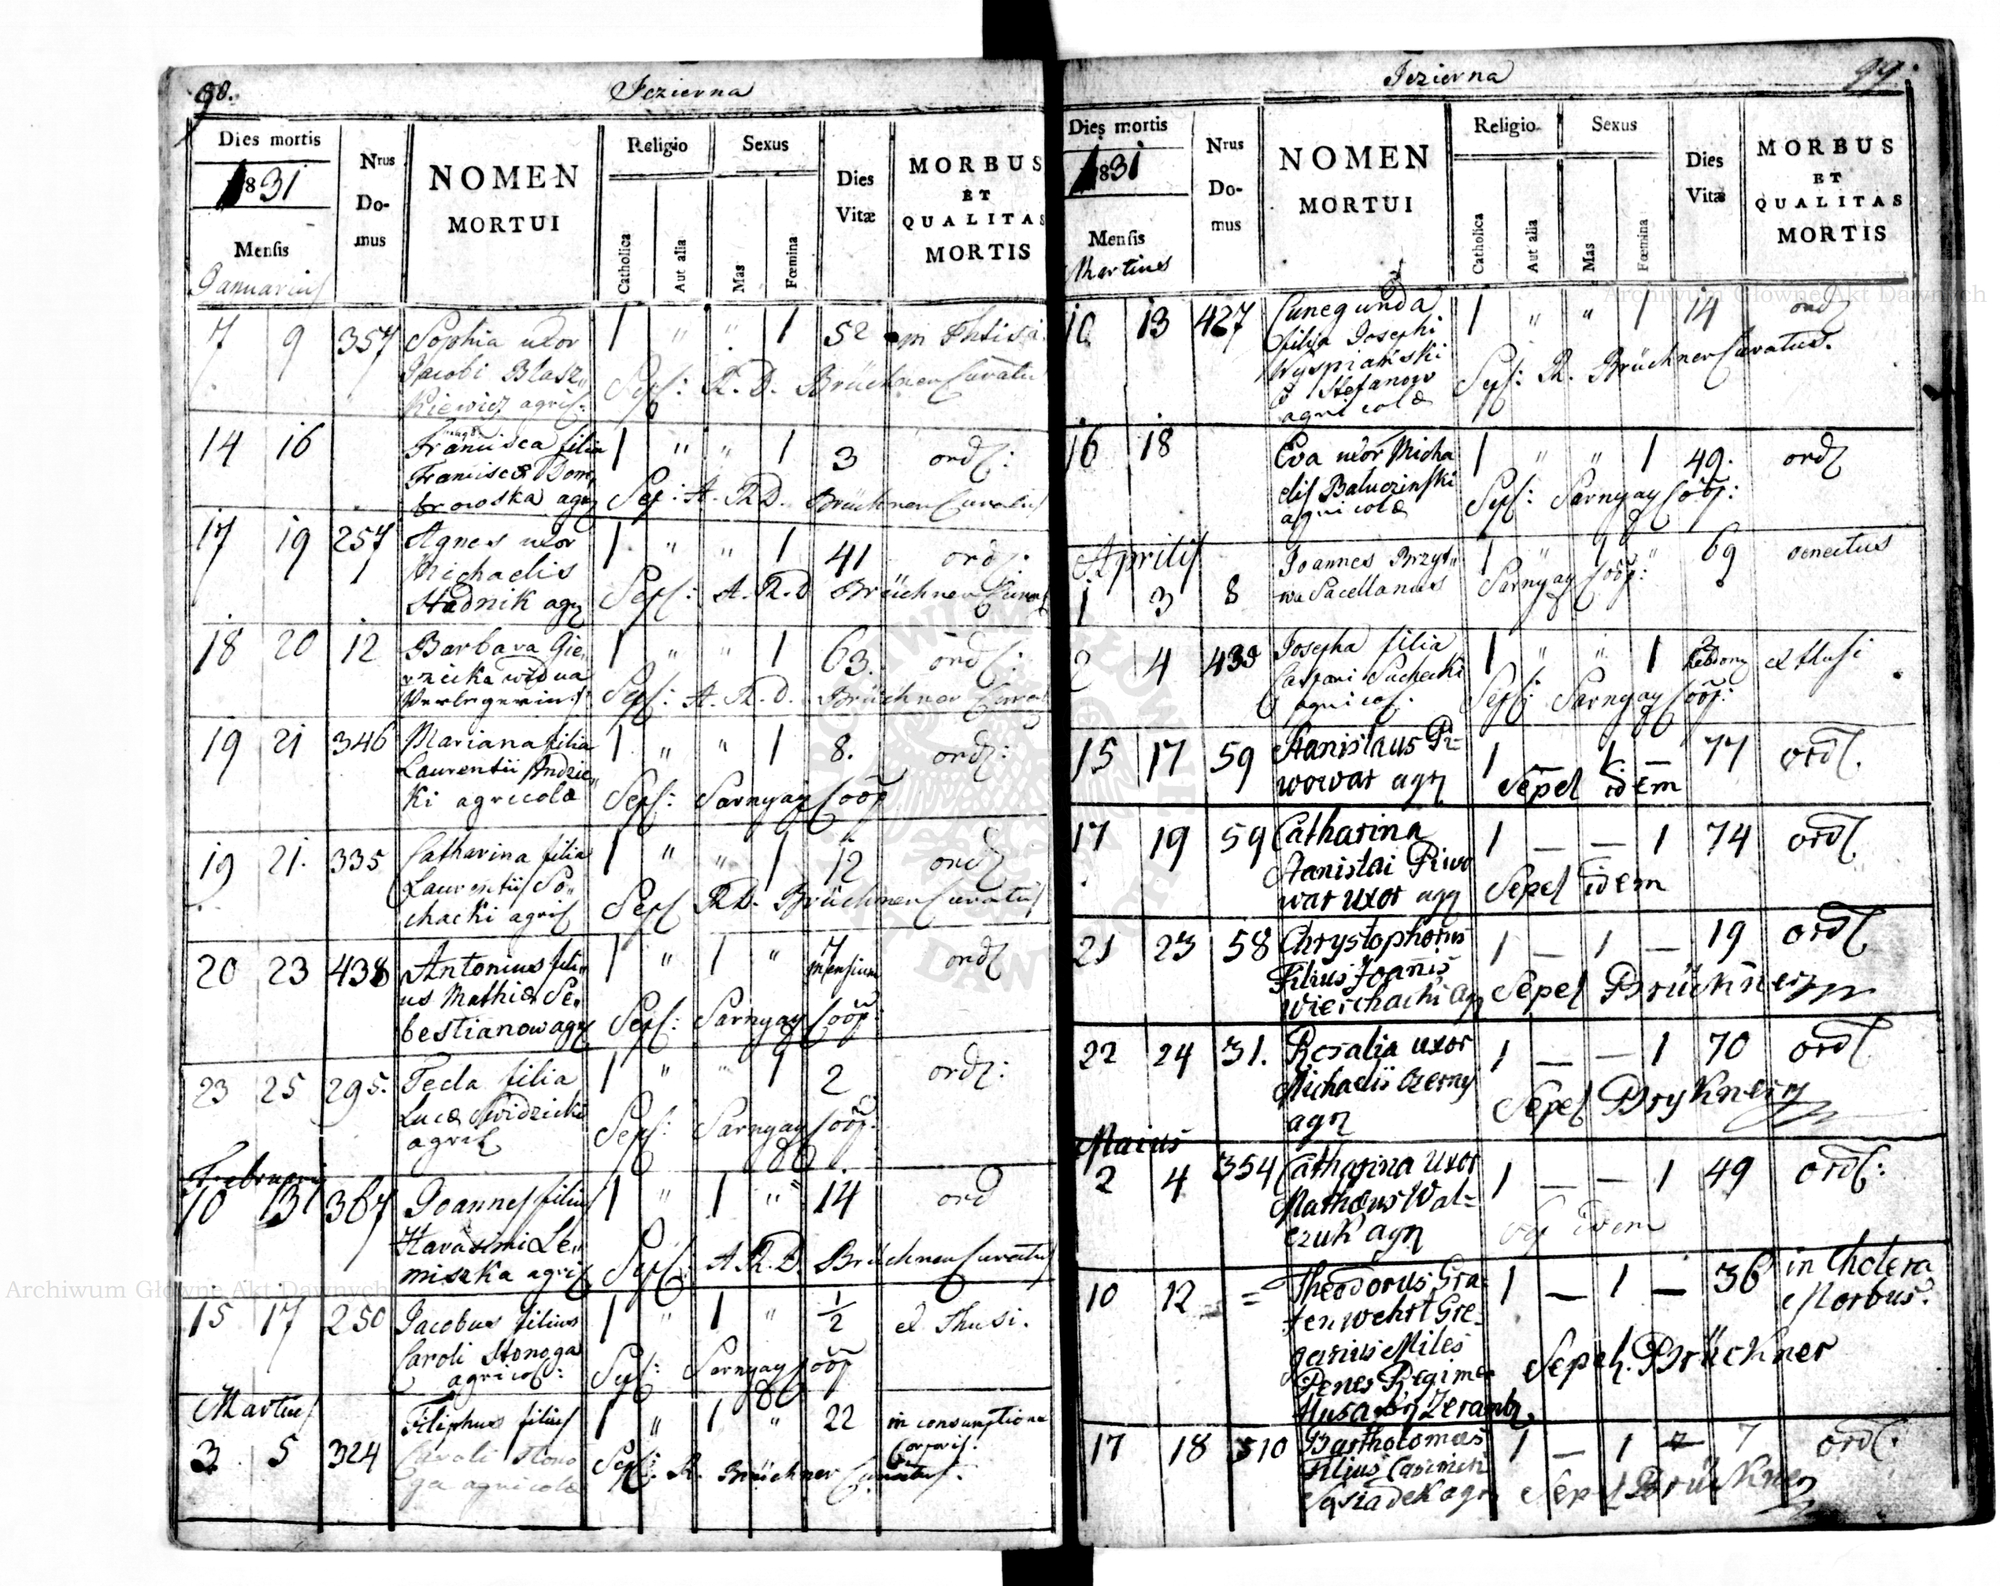 98.
Jezierna
Dies mortis
1831
Mensis
Januarius
Nrus
Do-
mus
NOMEN
MORTUI
Religio
Catholica
Aut alia
Sexus
Mas
Fœmina
Dies
Vitæ
MORBUS
ET
QUALITAS
MORTIS
7 9 357 Sophia uxor 1 " " 1 52 in Phtisi
Jacobi Blasz„
kiewicz agric: Sepl: R. D. Brückner Curatus
14 16 Francisca filia 1 " " 1 3 ord:
Dom„
browska agr Sep: A. R.D. Brückner Curatus
17 19 257 Agnes uxor 1 " " 1 41 ord:
Michaelis
Stadnik agr Sepl: A. R. D Brückner
18 20 12 Barbara Gie„ 1 " " 1 63. ord:
vidua
Sepl: A. R. D. Brückner
19 21 346 Mariana filia 1 " " 1 8. ord:
Laurentii Andzie„
ki agricolæ Sepl: Sarnyay Coop
19 21. 335 Catharina filia 1 " " 1 12 ord
Laurentii So„
chacki agric Sepl R.D. Brückner Curatus
20 23 438 Antonius fili„ 1 " 1 " 7 mensium ord
us Mathiæ Se„
bestianow agr Sepl: Sarnyay Coop:
23 25 295. Tecla filia 1 " " 1 2 ord:
Lucæ Swidzicki
agric Sepl: Sarnyay Coop:
Februarius
10 13 367 Joannes filius 1 " 1 " 14 ord
Harasimi Le„
miszka agric Sepl: A. R. D. Brückner Curatus
15 17 250 Jacobus filius 1 " 1 " 1/2 el thusi.
Caroli Stonoga
agricol: Sepl: Sarnyay Coop
Martius
3 5 324 Filiphus filius 1 " 1 " 22 in consumptione
Corporis.
Caroli Stono
ga agricolæ Sepl: R. Brückner Curatus.
Jezierna
99.
Dies mortis
1831
Mensis
Martius
Nrus
Do-
mus
NOMEN
MORTUI
Religio
Catholica
Aut alia
Sexus
Mas
Fœmina
Dies
Vitæ
MORBUS
ET
QUALITAS
MORTIS
10 13 427 Cunegunda 1 " " 1 14 ord
filia Josephi
Wyspiański
Stefanow
agricolæ Sepl: R. Brückner Curatus.
16 18 Eva uxor Micha 1 " " 1 49. ord
elis Baluczinski
agricolæ Sepl: Sarnyay Coop:
Aprilis
1 3 8 Joannes Brzyt„ 1 " 1 " 69 senectus
wa Sacellanus Sarnyay Coop:
2 4 433 Josepha filia 1 " " 1 2 hebdom el thusi
Caspari Suchecki
agricol. Sepl: Sarnyay Coop:
15 17 59 Stanislaus Pi- 1 — 1 — 77 ord.
wowar agr Sepel idem
17 19 59 Catharina 1 — — 1 74 ord
Stanislai Piwo
war uxor agr Sepel idem
21 23 58 Chrystophorus 1 — 1 — 19 ord
Filius Joanis
Wierchacki agr Sepel Brückner
22 24 31. Rosalia uxor 1 — — 1 70 ord
Michaelis Czerny
agr Sepel Brykner
Maius
2 4 354 Catharina uxor 1 — — 1 49 ord:
Mathæus Wal-
czuk agr idem
10 12 = Theodorus Gra- 1 — 1 — 36 in Cholera
Morbus.
tenwehrt Gre-
garius Miles
Penes Regimen
Sepel. Brückner
17 18 510 Bartholomæus 1 — 1 — 7 ord.
Filius Casimiri
Sąsiadek agr Sepel Brückner
Archiwum Główne Akt Dawnych
Archiwum Główne Akt Dawnych
ARCHIWUM GŁÓWNE AKT DAWNYCH